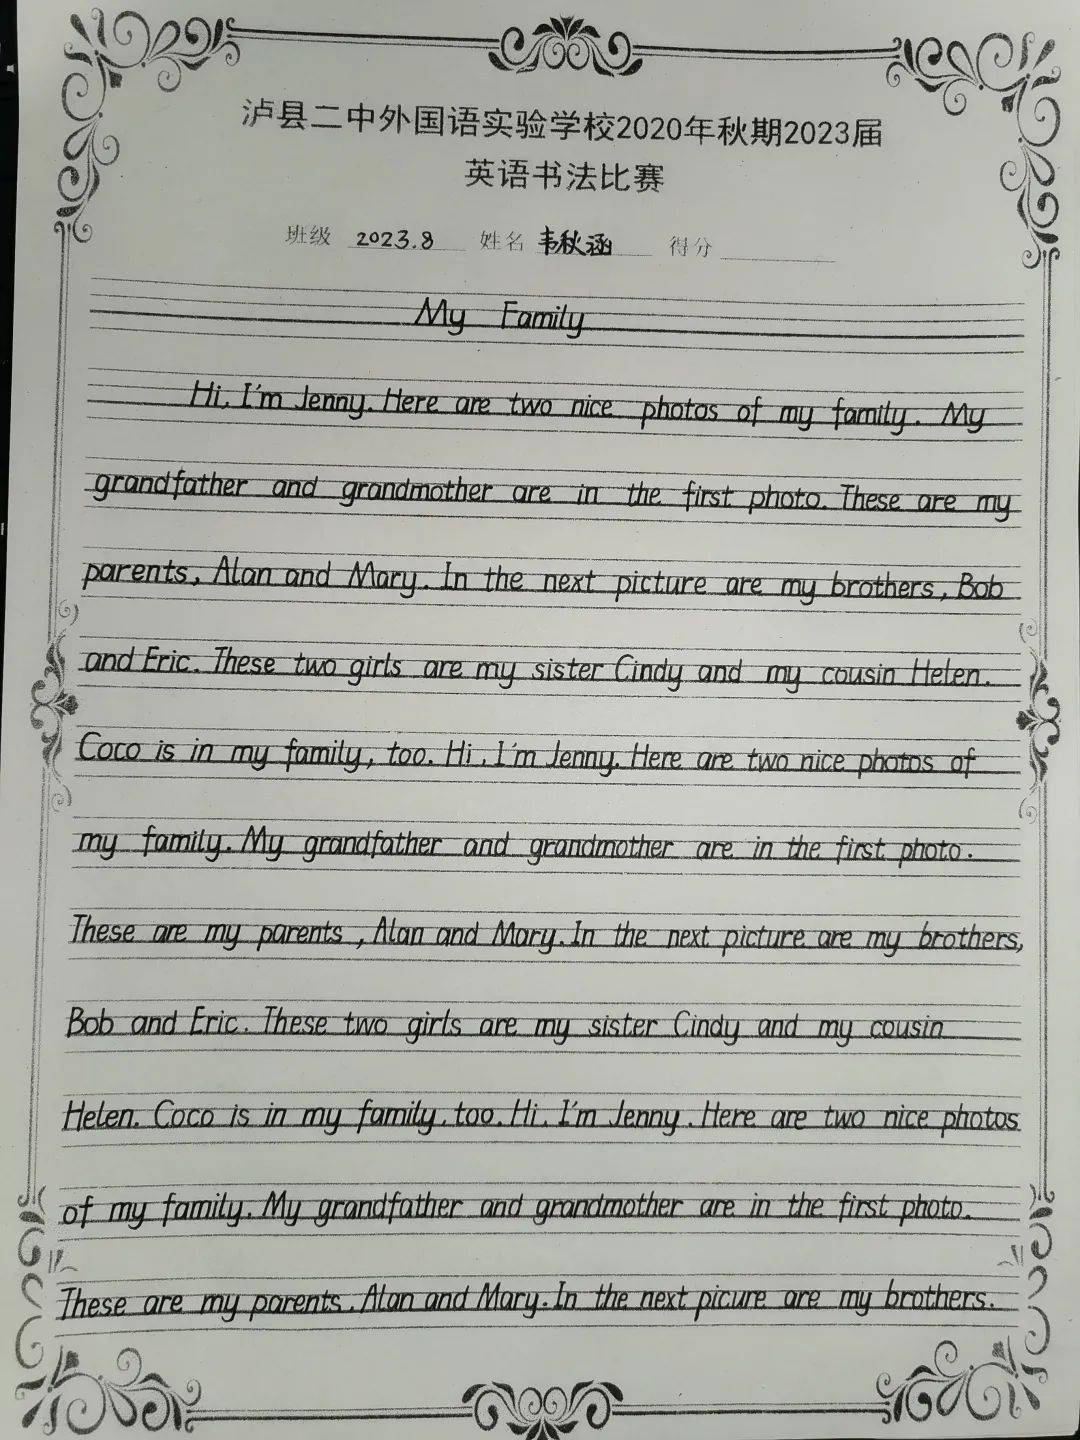 泸县二中外国语实验学校2020年秋期2023届
英语书法比赛
班级 2023.8 姓名 韦秋涵 得分
My Family
Hi, I'm Jenny. Here are two nice photos of my family. My
grandfather and grandmother are in the first photo. These are my
parents, Alan and Mary. In the next picture are my brothers, Bob
and Eric. These two girls are my sister Cindy and my cousin Helen.
Coco is in my family, too. Hi, I'm Jenny. Here are two nice photos of
my family. My grandfather and grandmother are in the first photo.
These are my parents, Alan and Mary. In the next picture are my brothers,
Bob and Eric. These two girls are my sister Cindy and my cousin
Helen. Coco is in my family, too. Hi, I'm Jenny. Here are two nice photos
of my family. My grandfather and grandmother are in the first photo.
These are my parents. Alan and Mary. In the next picure are my brothers.